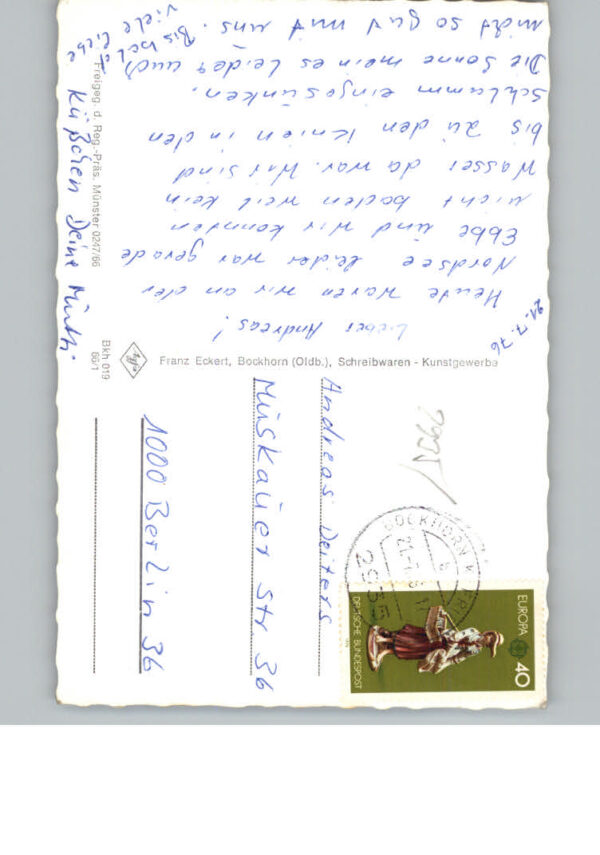 21.7.76
Lieber Andreas!
Heute waren wir an der
Nordsee leider war gerade
Ebbe und wir konnten
nicht baden weil kein
Wasser da war. Wir sind
bis zu den Knien in den
Schlamm eingesunken.
Die Sonne mein es leider auch
nicht so gut mit uns. Bis bald
viele liebe
Küßchen Deine Mutti
Freigeg. d. Reg.-Präs. Münster 0247/66
Bkh 019
66/1
Agfa
Franz Eckert, Bockhorn (Oldb.), Schreibwaren - Kunstgewerbe
Andreas Deiters
Muskauer Str 36
1000 Berlin 36
BOCKHORN
21.7.76
2935
EUROPA
40
DEUTSCHE BUNDESPOST